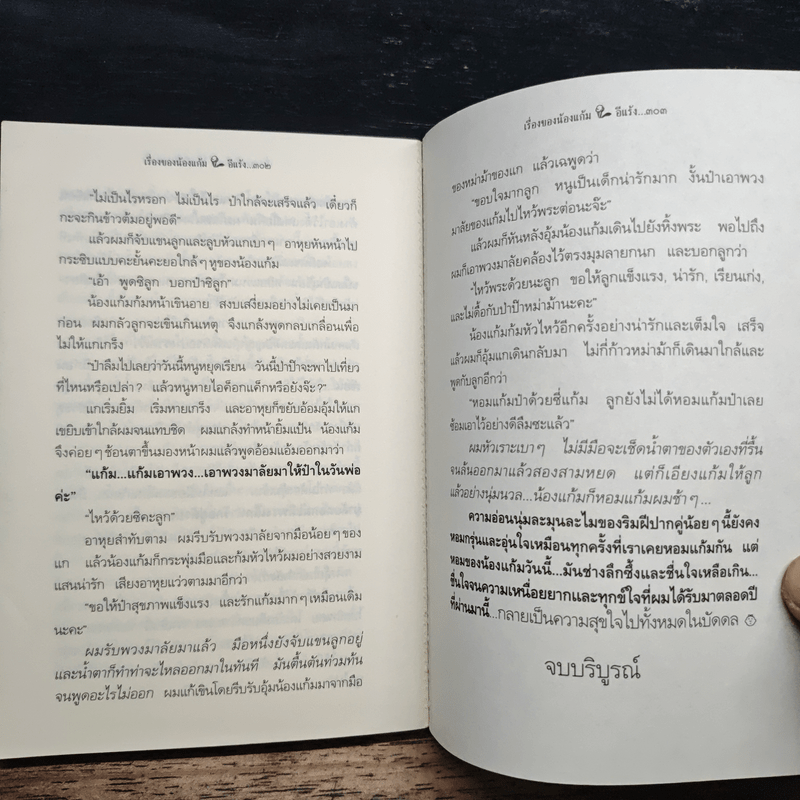 เรื่องของน้องแก้ม อีแร้ง...๓๐๒
"ไม่เป็นไรหรอก ไม่เป็นไร ป๋าใกล้จะเสร็จแล้ว เดี๋ยวก็
กะจะกินข้าวต้มอยู่พอดี"
แล้วผมก็จับแขนลูกและลูบหัวแกเบาๆ อาหุยหันหน้าไป
กระซิบแบบคะยั้นคะยอใกล้ๆหูของน้องแก้ม
"เอ้า พูดซิลูก บอกป๋าซิลูก"
น้องแก้มก้มหน้าเขินอาย สงบเสงี่ยมอย่างไม่เคยเป็นมา
ก่อน ผมกลัวลูกจะเขินเกินเหตุ จึงแกล้งพูดกลบเกลื่อนเพื่อ
ไม่ให้แกเกร็ง
"ป๋าลืมไปเลยว่าวันนี้หนูหยุดเรียน วันนี้ป๋าป๊าจะพาไปเที่ยว
ที่ไหนหรือเปล่า? แล้วหนูหายไอค็อกแค็กหรือยังจ๊ะ?"
แกเริ่มยิ้ม เริ่มหายเกร็ง และอาหุยก็ขยับอ้อมอุ้มให้แก
เขยิบเข้าใกล้ผมจนแทบชิด ผมแกล้งทำหน้ายิ้มแป้น น้องแก้ม
จึงค่อยๆช้อนตาขึ้นมองหน้าผมแล้วพูดอ้อมแอ้มออกมาว่า
"แก้ม...แก้มเอาพวง...เอาพวงมาลัยมาให้ป๋าในวันพ่อ
ค่ะ"
"ไหว้ด้วยซิคะลูก"
อาหุยสำทับตาม ผมรีบรับพวงมาลัยจากมือน้อยๆของ
แก แล้วน้องแก้มก็กระพุ่มมือและก้มหัวไหว้ผมอย่างสวยงาม
แสนน่ารัก เสียงอาหุยแว่วตามมาอีกว่า
"ขอให้ป๋าสุขภาพแข็งแรง และรักแก้มมากๆเหมือนเดิม
นะคะ"
ผมรับพวงมาลัยมาแล้ว มือหนึ่งยังจับแขนลูกอยู่
และน้ำตาก็ทำท่าจะไหลออกมาในทันที มันตื้นตันท่วมท้น
จนพูดอะไรไม่ออก ผมแก้เขินโดยรีบรับอุ้มน้องแก้มมาจากมือ
เรื่องของน้องแก้ม อีแร้ง...๓๐๓
ของหม่าม้าของแก แล้วเฉพูดว่า
"ขอบใจมากลูก หนูเป็นเด็กน่ารักมาก งั้นป๋าเอาพวง
มาลัยของแก้มไปไหว้พระต่อนะจ๊ะ"
แล้วผมก็หันหลังอุ้มน้องแก้มเดินไปยังหิ้งพระ พอไปถึง
ผมก็เอาพวงมาลัยคล้องไว้ตรงมุมลายกนก และบอกลูกว่า
"ไหว้พระด้วยนะลูก ขอให้ลูกแข็งแรง, น่ารัก, เรียนเก่ง,
และไม่ดื้อกับป่าป๊าหม่าม้านะคะ"
น้องแก้มก้มหัวไหว้อีกครั้งอย่างน่ารักและเต็มใจ เสร็จ
แล้วผมก็อุ้มแกเดินกลับมา ไม่กี่ก้าวหม่าม้าก็เดินมาใกล้และ
พูดกับลูกอีกว่า
"หอมแก้มป๋าด้วยซี่แก้ม ลูกยังไม่ได้หอมแก้มป๋าเลย
ซ้อมเอาไว้อย่างดีลืมซะแล้ว"
ผมหัวเราะเบาๆ ไม่มีมือจะเช็ดน้ำตาของตัวเองที่รื้น
จนล้นออกมาแล้วสองสามหยด แต่ก็เอียงแก้มให้ลูก
แล้วอย่างนุ่มนวล...น้องแก้มก็หอมแก้มผมช้าๆ...
ความอ่อนนุ่มละมุนละไมของริมฝีปากคู่น้อยๆนี้ยังคง
หอมกรุ่นและอุ่นใจเหมือนทุกครั้งที่เราเคยหอมแก้มกัน แต่
หอมของน้องแก้มวันนี้...มันช่างลึกซึ้งและชื่นใจเหลือเกิน...
ชื่นใจจนความเหนื่อยยากและทุกข์ใจที่ผมได้รับมาตลอดปี
ที่ผ่านมานี้...กลายเป็นความสุขใจไปทั้งหมดในบัดดล
จบบริบูรณ์